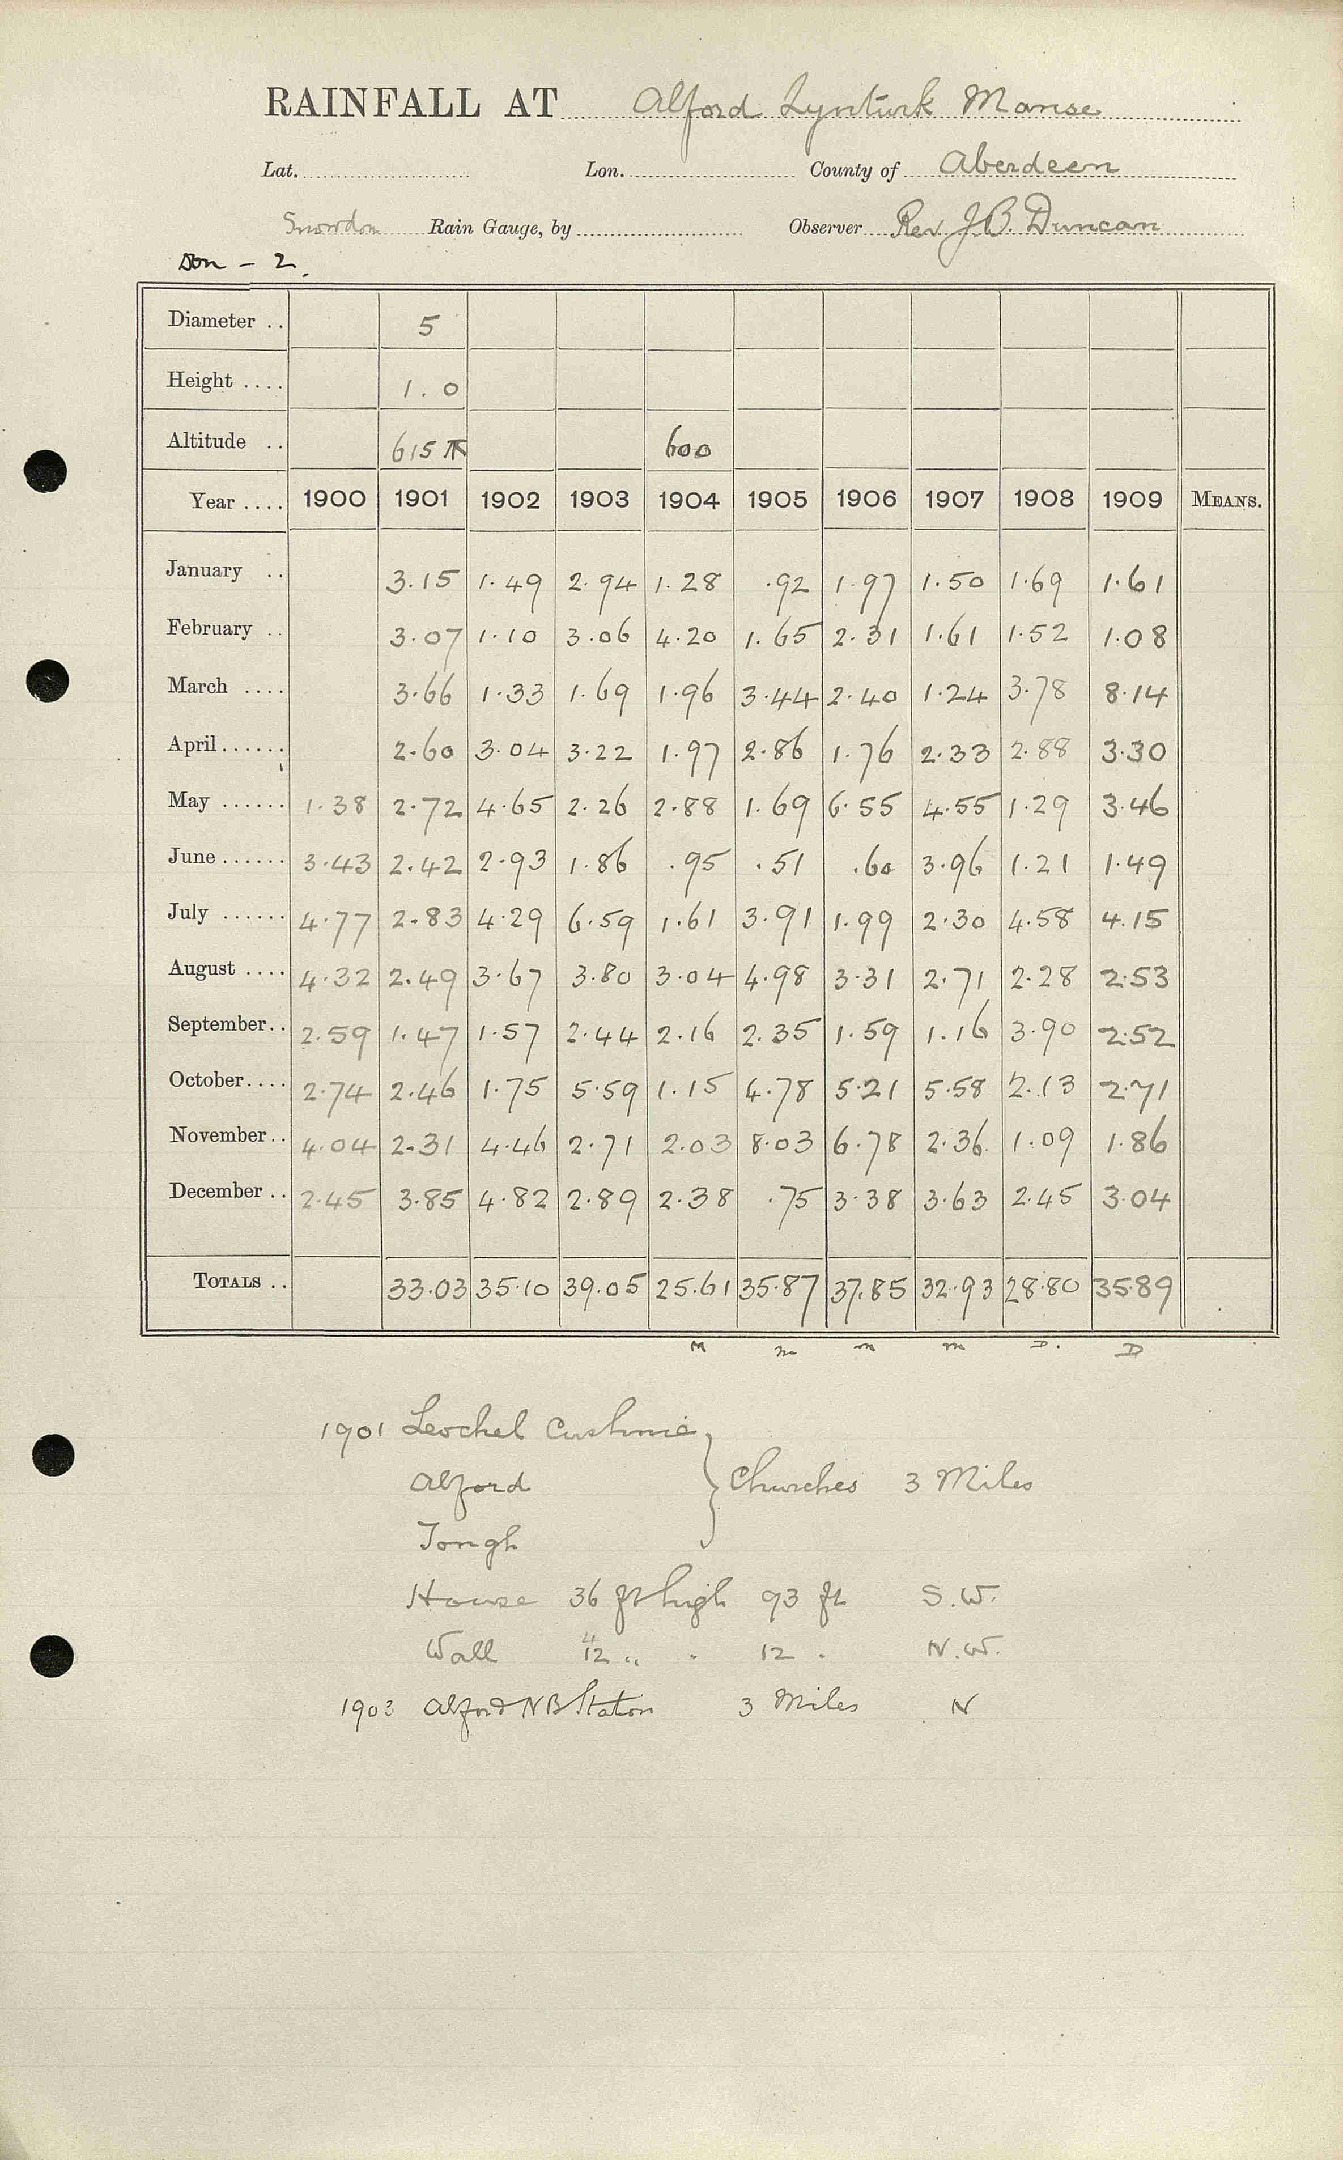 RAINFALL AT Alford Lynturk Manse
Lat. Lon. County of Aberdeen
Snowdon Rain Gauge, by Observer Rev J.B. Duncan
Don - 2.
Diameter .. 5
Height .... 1.0
Altitude .. 615 600
Year .... 1900 1901 1902 1903 1904 1905 1906 1907 1908 1909 MEANS.
January .. 3.15 1.49 2.94 1.28 .92 1.97 1.50 1.69 1.61
February .. 3.07 1.10 3.06 4.20 1.65 2.31 1.61 1.52 1.08
March .... 3.66 1.33 1.69 1.96 3.44 2.40 1.24 3.78 8.14
April ...... 2.60 3.04 3.22 1.97 2.86 1.76 2.33 2.88 3.30
May ...... 1.38 2.72 4.65 2.26 2.88 1.69 6.55 4.55 1.29 3.46
June ...... 3.43 2.42 2.93 1.86 .95 .51 .60 3.96 1.21 1.49
July ...... 4.77 2.83 4.29 6.59 1.61 3.91 1.99 2.30 4.58 4.15
August .... 4.32 2.49 3.67 3.80 3.04 4.98 3.31 2.71 2.28 2.53
September.. 2.59 1.47 1.57 2.44 2.16 2.35 1.59 1.16 3.90 2.52
October.... 2.74 2.46 1.75 5.59 1.15 4.78 5.21 5.58 2.13 2.71
November.. 4.04 2.31 4.46 2.71 2.03 8.03 6.78 2.36 1.09 1.86
December .. 2.45 3.85 4.82 2.89 2.38 .75 3.38 3.63 2.45 3.04
TOTALS .. 33.03 35.10 39.05 25.61 35.87 37.85 32.93 28.80 35.89
M m m m D. D
1901 Leochel Cushnie
Alford } Churches 3 Miles
Tough
House 36 ft high 93 ft S.W.
Wall 12 N.W.
1903 Alford NB Station 3 Miles N